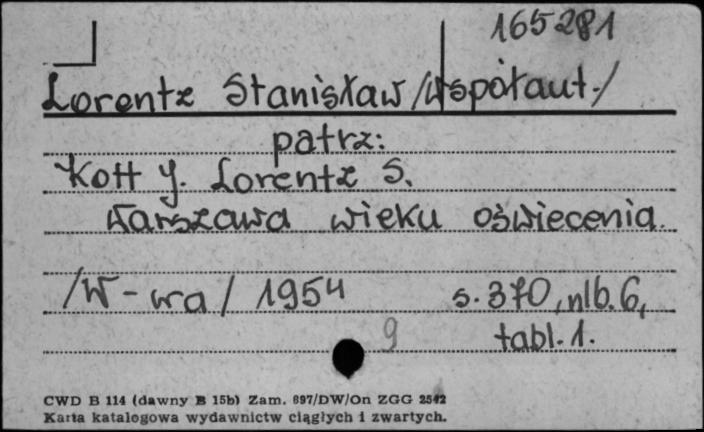 165281
Lorentz Stanisław /współaut./
patrz:
Kott J. Lorentz S.
Warszawa wieku oświecenia.
/W-wa/ 1954 s. 370, nlb. 6,
9 tabl. 1.
CWD B 114 (dawny B 15b) Zam. 897/DW/On ZGG 2542
Karta katalogowa wydawnictw ciągłych i zwartych.